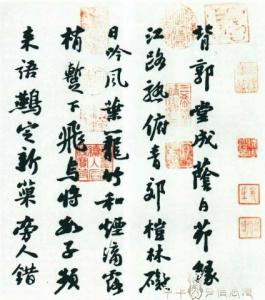 背郭堂成蔭白茅緣
江路熟俯青郊榿林礙
日吟風葉籠竹和煙滴露
梢暫下飛烏將數子頻
來語鷰定新巢旁人錯